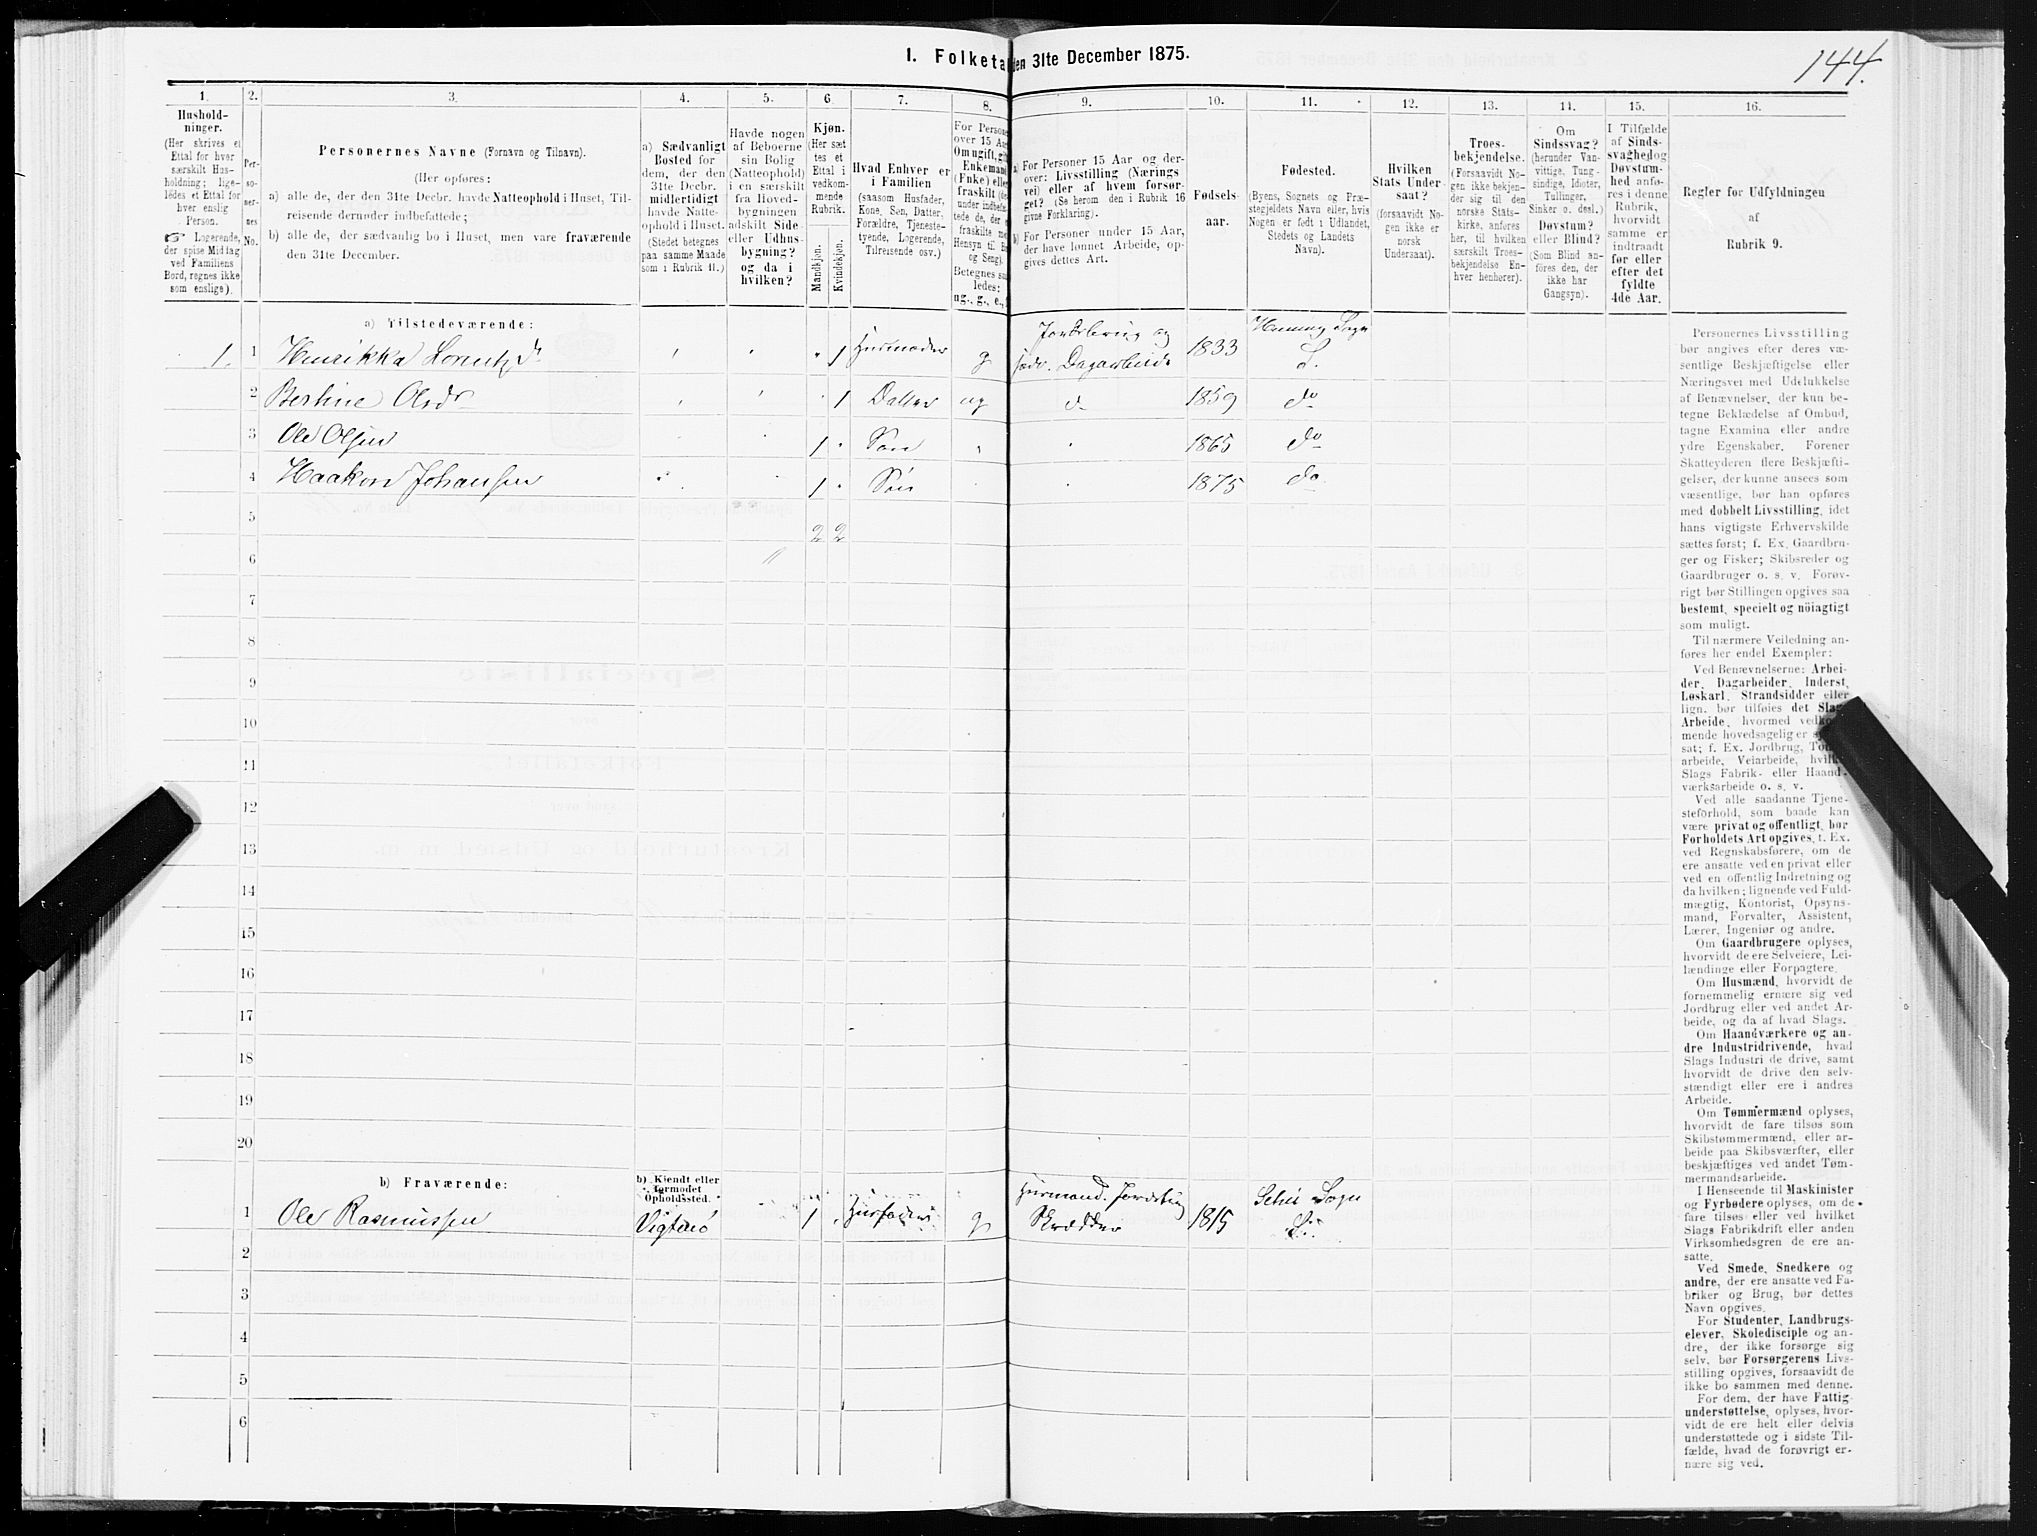 1. Folketa den 31te December 1875.
144.
1.
2.
3.
4.
5.
6.
7.
8.
9.
10.
11.
12.
13.
14.
15.
16.
Hushold-
ninger.
(Her skrives et
Ettal for hver
særskilt Hus-
holdning; lige-
ledes et Ettal for
hver enslig
Person.
Logerende,
der spise Middag
ved Familiens
Bord, regnes ikke
som enslige).
Per-
so-
ner-
nes
No.
Personernes Navne (Fornavn og Tilnavn).
(Her opføres:
a) alle de, der den 31te Decbr. havde Natteophold i Huset, Til-
reisende derunder indbefattede;
b) alle de, der sædvanlig bo i Huset, men vare fraværende
den 31te December.
a) Sædvanligt
Bosted for
dem, der den
31te Decbr.
midlertidigt
havde Natte-
ophold i Huset.
(Stedet betegnes
paa samme Maade
som i Rubrik 11.)
Havde nogen
af Beboerne
sin Bolig
(Natteophold)
i en særskilt
fra Hoved-
bygningen
adskilt Side-
eller Udhus-
bygning?
og da i
hvilken?
Kjøn.
(Her sæt-
tes et
Ettal i
vedkom-
mende
Rubrik.
Mandkjøn.
Kvindekjøn.
Hvad Enhver er
i Familien
(saasom Husfader,
Kone, Søn, Datter,
Forældre, Tjeneste-
tyende, Logerende,
Tilreisende osv.)
For Persone
over 15 Aa
Om ugift, gi
Enkemand
(Enke) elle
fraskilt (de
under indbefat-
tede de, der e
fraskilte me
Hensyn til B
og Seng).
Betegnes sa
ledes:
ug., g., e.,
a) For Personer 15 Aar og der-
over: Livsstilling (Nærings
vei) eller af hvem forsør-
get? (Se herom den i Rubrik 16
givne Forklaring).
b) For Personer under 15 Aar,
der have lønnet Arbeide, op-
gives dettes Art.
Fødsels-
aar.
Fødested.
(Byens, Sognets og Præ-
stegjeldets Navn eller, hvis
Nogen er født i Udlandet,
Stedets og Landets
Navn).
Hvilken
Stats Under-
saat?
(forsaavidt No-
gen ikke er
norsk
Undersaat).
Troes-
bekjendelse.
(Forsaavidt No-
gen ikke bekjen-
der sig til den
norske Stats-
kirke, anføres
her, til hvilken
særskilt Troes-
bekjendelse En-
hver henhører).
Om
Sindssvag?
(herunder Van-
vittige, Tung-
sindige, Idioter,
Tullinger,
Sinker o. desl.)
Døvstum?
eller Blind?
(Som Blind an-
føres den, der
ikke har
Gangsyn).
I Tilfælde
af Sinds-
svaghed og
Døvstum-
hed anfø-
res i denne
Rubrik,
hvorvidt
samme er
indtraadt
før eller
efter det
fyldte
4de Aar.
Regler for Udfyldningen
af
Rubrik 9.
a) Tilstedeværende:
1. 1 Henrikka Lorentzdr 1 Husmoder g Jordbrug og 1833 Sogn
Dagarbeide
2 Bertine Olsdr 1 Datter ug 1859 do
3 Ole Olsen 1 Søn 1865 do
4 Haakon Johansen 1 Søn 1875 do
5
2 2
6
7
8
9
10
11
12
13
14
15
16
17
18
19
20
b) Fraværende:
b) Kjendt eller
formodet
Opholdssted.
1 Ole Rasmussen 1 Husfader g Husmand. 1815 Sogn
Skrædder
2
3
4
5
6
Personernes Livsstilling
bør angives efter deres væ-
sentlige Beskjæftigelse eller
Næringsvei med Udelukkelse
af Benævnelser, der kun be-
tegne Beklædelse af Ombud,
tagne Examina eller andre
ydre Egenskaber. Forener
Skatteyderen flere Beskjæfti-
gelser, der kunne ansees som
væsentlige, bør han opføres
med dobbelt Livsstilling, idet
hans vigtigste Erhvervskilde
sættes først; f. Ex. Gaardbru-
ger og Fisker; Skibsreder og
Gaardbruger o. s. v. Forøv-
rigt bør Stillingen opgives saa
bestemt, specielt og nöiagtigt
som muligt.
Til nærmere Veiledning an-
føres her endel Exempler:
Ved Benævnelserne: Arbei-
der, Dagarbeider, Inderst,
Løskarl, Strandsidder eller
lign. bør tilføies det Slags
Arbeide, hvormed vedkom-
mende hovedsagelig er
sat; f. Ex. Jordbrug,
arbeide, Veiarbeide,
Slags Fabrik- eller Haand-
værksarbeide o. s. v.
Ved alle saadanne Tjene-
steforhold, som baade kan
være privat og offentligt, bør
Forholdets Art opgives, t. Ex.
ved Regnskabsførere, om de
ere ansatte ved en privat eller
ved en offentlig Indretning og
da hvilken; lignende ved Fuld-
mægtig, Kontorist, Opsyns-
mand, Forvalter, Assistent,
Lærer, Ingeniør og andre.
Om Gaardbrugere oplyses,
hvorvidt de ere Selveiere, Lei-
lændinge eller Forpagtere.
Om Husmænd, hvorvidt de
fornemmelig ernære sig ved
Jordbrug eller ved andet Ar-
beide, og da af hvad Slags.
Om Haandværkere og an-
dre Industridrivende, hvad
Slags Industri de drive, samt
hvorvidt de drive den selv-
stændigt eller ere i andres
Arbeide.
Om Tømmermænd oplyses,
hvorvidt de fare tilsøs som
Skibstømmermænd, eller ar-
beide paa Skibsværfter, eller
beskjæftiges ved andet Tøm-
mermandsarbeide.
I Henseende til Maskinister
og Fyrbødere oplyses, om de
fare tilsøs eller ved hvilket
Slags Fabrikdrift eller anden
Virksomhedsgren de ere an-
satte.
Ved Smede, Snedkere og
andre, der ere ansatte ved Fa-
briker og Brug, bør dettes
Navn opgives.
For Studenter, Landbrugs-
elever, Skoledisciple og an-
dre, der ikke forsørge sig
selv, bør Forsørgerens Livs-
stilling opgives, forsaavidt de
ikke bo sammen med denne.
For dem, der have Fattig-
understøttelse, oplyses, hvor-
vidt de ere helt eller delvis
understøttede og i sidste Til-
fælde, hvad de forøvrigt er-
nære sig ved.